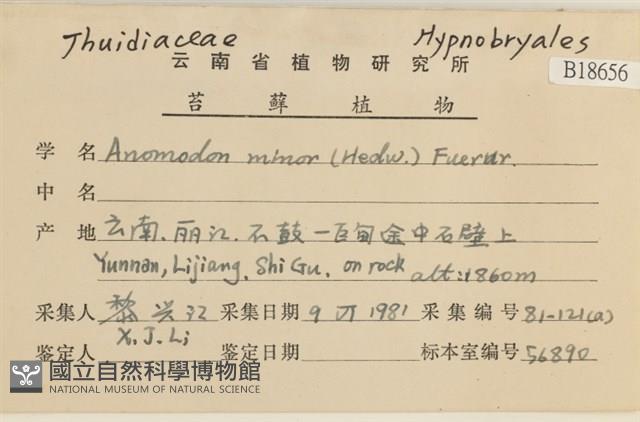 Thuidiaceae Hypnobryales
云南省植物研究所
B18656
苔藓植物
学名 Anomodon minor (Hedw.) Fuernr.
中名
产地 云南.丽江.石鼓—巨甸途中石壁上
Yunnan, Lijiang. Shi Gu. on rock alt: 1860m
采集人 黎兴江 采集日期 9 VI 1981 采集编号 81-121(a)
X. J. Li
鉴定人 鉴定日期 标本室编号 56890
國立自然科學博物館
NATIONAL MUSEUM OF NATURAL SCIENCE